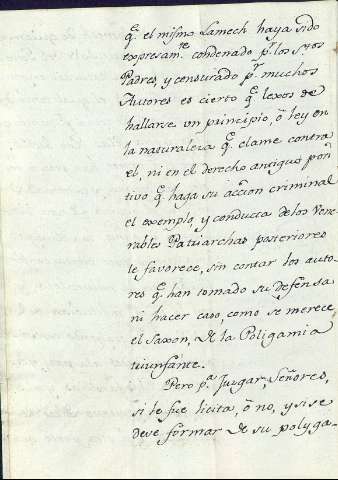 q.ᵉ el mismo Lamech haya sido
expresam.ᵗᵉ condenado p.ʳ los S.ᵗᵒˢ
Padres, y censurado p.ʳ muchos
Autores es cierto q.ᵉ lexos de
hallarse un principio, ò ley en
la naturaleza q.ᵉ clame contra
el, ni en el derecho antiguo posi
tivo q.ᵉ haga su accion criminal
el exemplo, y conducta de los Vene
rables Patriarchas posteriores
le favorece, sin contar los auto-
res q.ᵉ han tomado su defensa
ni hacer caso, como se merece,
el Saxon, de la Poligamia
triunfante.
Pero p.ᵃ Juzgar Señores,
si le fue licita, ò no, y si se
deve formar de su polyga-